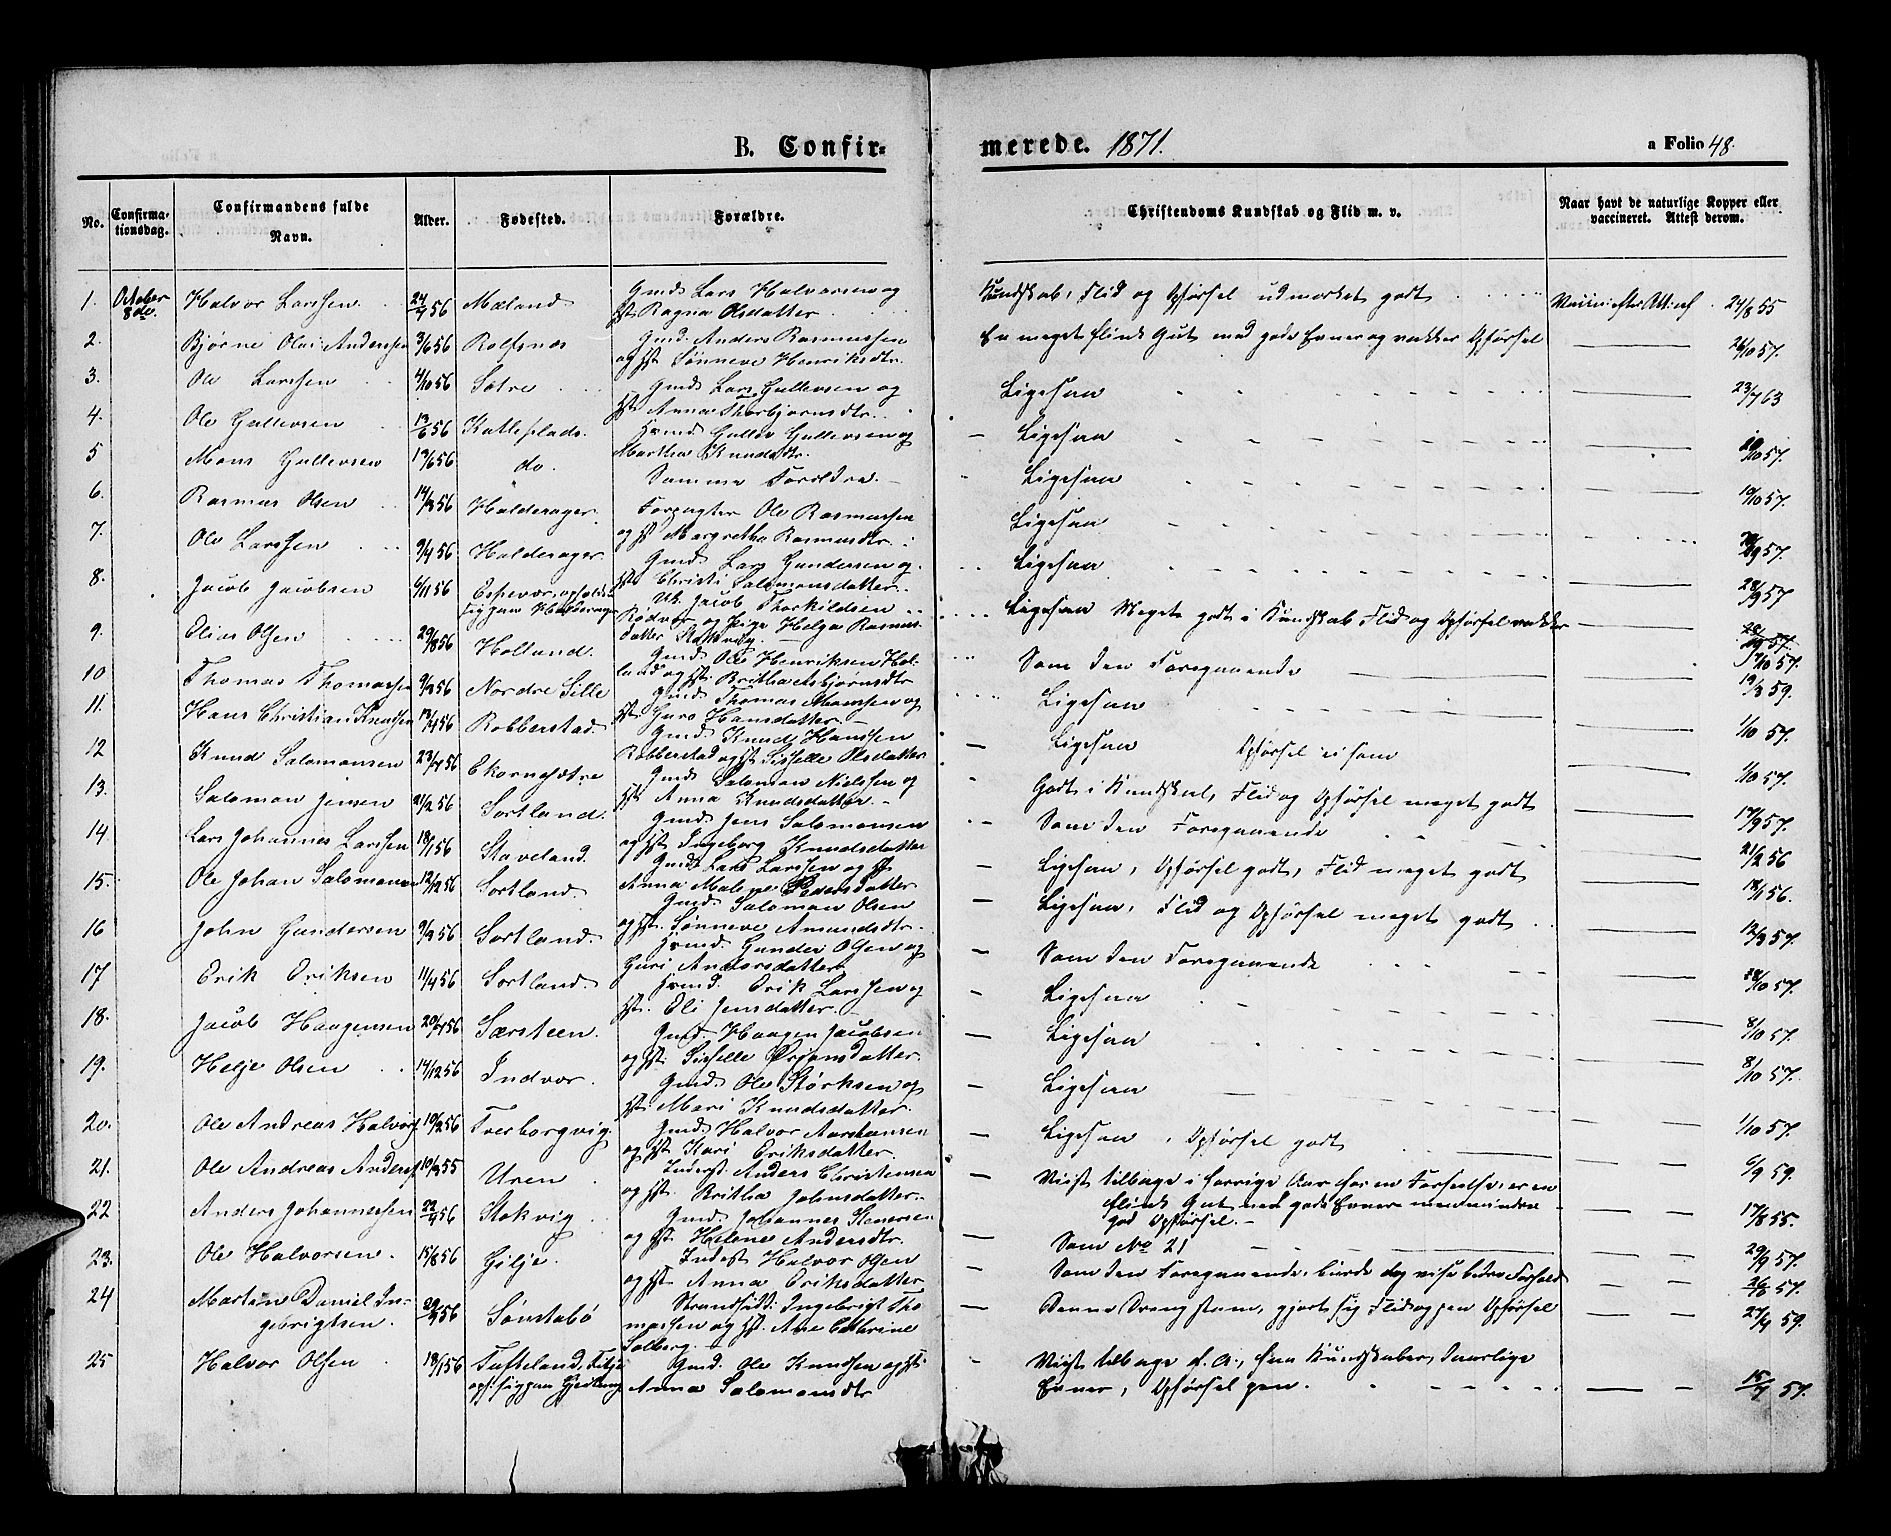 B. Confir-
merede. 1871.
a Folio 48.
No.
Confirma-
tionsdag.
Confirmandens fulde
Navn.
Alder.
Fødested.
Forældre.
Christendoms Kundskab og Flid m. v.
Naar havt de naturlige Kopper eller
vaccineret. Attest derom.
1. October 8de Halvor Larssen 24/4 56 Mæland Gmd. Lars Halvorsen og
Hst. Ragna Olsdatter
Kundskab, Flid og Opførsel udmerket godt 24/8 55
2. Bjørne Olai Andersen 3/6 56 Rolfsnæs Gmd. Anders Rasmussen
og Hst. Sønneve Henriksdtr.
En meget flink Gut med gode Evner og vakker Opførsel 26/10 57.
3. Ole Larssen 4/10 56 Sætre Gmd. Lars Gullevsen og
Hst. Anna Thorbjørnsdtr.
Ligesaa 23/7 63
4. Ole Gullevsen 13/6 56 Katleplads. Hmd. Gullev Gullevsen og
Martha Knudsdtr.
Ligesaa 10/10 57.
5 Mons Gullevsen 13/6 56 do. Samme Forældre.
Ligesaa 10/10 57.
6. Rasmus Olsen 14/3 56 Halderager. Forpagter Ole Rasmussen
og Hst. Margretha Rasmusdtr.
Ligesaa
7. Ole Larssen 9/4 56 Halderager. Gmd. Lars Gundersen og
Hst. Christi Salomonsdatter.
Ligesaa 28/9 57
8. Jacob Jacobsen 6/11 56 Espevær, opholdt
sig paa Halderager Uk. Jacob Thorkildsen
Rødvær og Pige Helga Rasmus-
datter
Ligesaa Meget godt i Kundskab Flid og Opførsel vakker
9. Elias Olsen 29/8 56 Holland. Gmd. Ole Henriksen Hol-
land og Hst. Britha Asbjørnsdtr
Som den Foregaaende 7/10 57.
10 Thomas Thomassen 9/3 56 Nordre Sille Gmd. Thomas Monssen og
Hst. Guro Hansdatter.
Ligesaa 19/3 59.
11. Hans Christian Knudsen 13/4 56 Robberstad. Gmd. Knud Hanssen
Robberstad og Hst. Sisselle Olsdatter
Ligesaa Opførsel ei som 1/10 57.
12 Knud Salomonsen 23/4 56 Ekornesætre Gmd. Salomon Nielssen og
Hst. Anna Knudsdatter.
Godt i Kundskab, Flid og Opførsel meget godt 1/10 57.
13. Salomon Jensen 21/2 56 Sortland. Gmd. Jens Salomonsen
og Hst. Ingeborg Knudsdatter
Som den Foregaaende 17/9 57.
14. Lars Johannes Larssen 18/1 56 Staveland. Gmd. Lars Larssen og Hst
Anna Malene Pedersdatter
Ligesaa, Opførsel godt, Flid meget godt 21/2 56
15. Ole Johan Salomonsen 12/12 56 Sortland. Gmd. Salomon Olsen
og Hst. Sønneve Amundsdtr.
Ligesaa, Flid og Opførsel meget godt 18/1 56.
16 John Gundersen 9/3 56 Sortland. Hmd. Gunder Olsen og
Guri Andersdatter
Som den Foregaaende 12/3 57.
17 Erik Eriksen 11/4 56 Sortland. Hmd. Erik Larssen og
Hst. Eli Jensdatter.
Ligesaa 18/10 57.
18. Jacob Haagensen 20/4 56 Særsteen. Gmd. Haagen Jacobsen
og Hst. Sisselle Ørjansdatter.
Ligesaa 8/10 57.
19. Helje Olsen 14/12 56 Indvær. Gmd. Ole Størksen og
Hst. Mari Knudsdatter.
Ligesaa 8/10 57.
20. Ole Andreas Halvors. 10/2 56 Tverborgvig. Gmd. Halvor Aarstensen
og Hst. Kari Eriksdatter.
Ligesaa, Opførsel godt 1/10 57.
21. Ole Andreas Anders. 10/3 55 Uren. Inderst. Anders Christensen
og Hst. Britha Johnsdatter.
Viist tilbage i forrige Aar for en Forseelse, er en
flink Gut med gode Evner men mindre
god Opførsel. 6/9 59.
22 Anders Johannessen 22/4 56 Stokvig Gmd. Johannes Stenersen
og Hst. Helene Andersdtr.
Som No 21 17/8 55.
23. Ole Halvorsen. 15/8 56 Gilje. Inderst Halvor Olsen
og Hst. Anna Eriksdatter
Som den Foregaaende, burde dog vise bedre Forhold 29/9 57.
24 Morten Daniel In-
gebrigtsen. 29/4 56 Sønstabø Strandsidd: Ingebrigt Tho
massen og Hst. Ane Cathrine
Solberg.
Denne Dreng stam, gjort sig Flid og pen Opførsel 27/4 59.
25 Halvor Olsen 18/1 56 Tufteland, Fitje
Gmd. Ole Knudsen og Hst.
Anna Salomonsdtr
Viist tilbage f. A., faa Kundskaber, daarlige
Evner, Opførsel pen. 15/7 57.